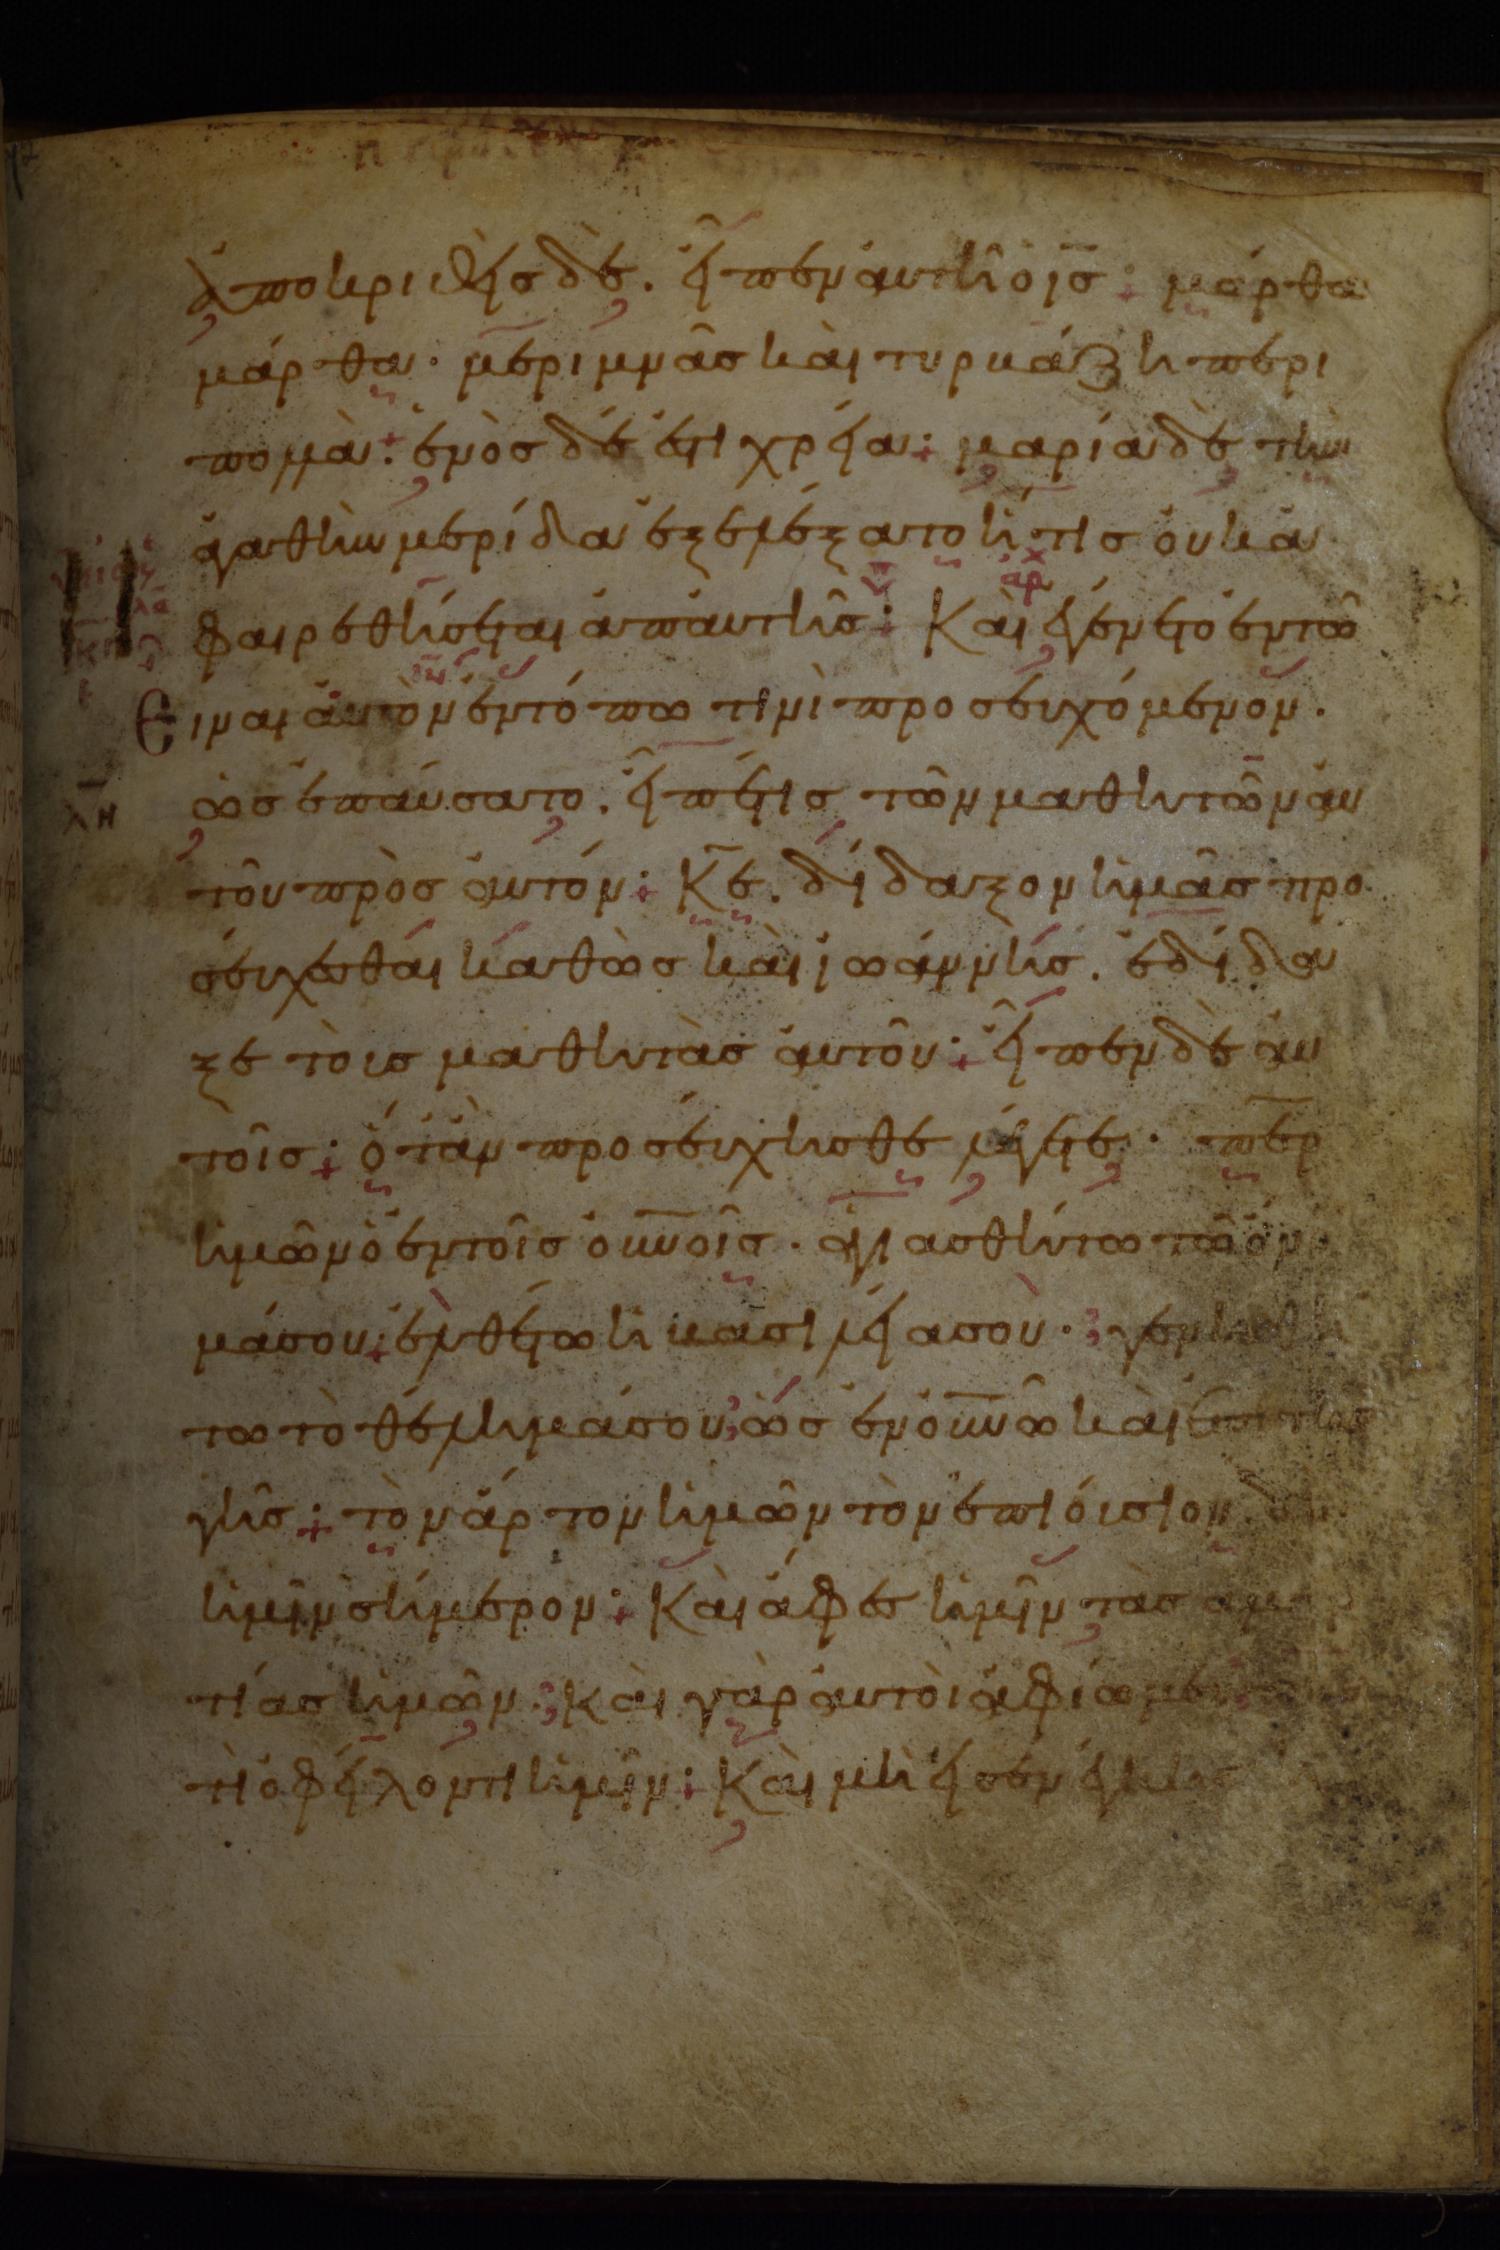 ἀποκριθεὶς δὲ. εἶπεν αὐτῆ ὁ ις̅: μάρθα
μάρθα· μεριμνᾶς καὶ τυρβάζη περι
πολλὰ: ἑνὸς δέ ἐστι χρεία: μαρία δὲ τὴν
ἀγαθὴν μερίδα ἐξελέξατο ἥτις οὐκ ἀ
φαιρεθήσεται ἀπ' αὐτῆς: Καὶ ἐγένετο ἐν τῶ
Εἶναι αὐτὸν ἐν τόπω τινὶ προσευχόμενον.
ὡς ἐπαύσατο. εἶπέ τις τῶν μαθητῶν αὐ
λη
τοῦ πρὸς αὐτόν: Κε̅. δίδαξον ἡμᾶς προ
σεύχεσθαι καθὼς καὶ ἰωάννης. ἐδίδα
ξε τοὺς μαθητὰς αὐτοῦ: εἶπεν δὲ αὐ
τοῖς: ὅταν προσεύχησθε λέγετε· περ̅
ἡμῶν ὁ ἐν τοῖς οὐνοῖς̅. ἁγιασθήτω τὸ ὄνο
μά σου: ἐλθέτω ἡ βασιλεία σου· γενηθή
τω τὸ θέλημά σου, ὡς ἐν οὐνῶ̅ καὶ ἐπὶ τῆς
γῆς: τὸν ἄρτον ἡμῶν τὸν ἐπιούσιον
ἡμῖν σήμερον: Καὶ ἄφες ἡμῖν τὰς
τίας ἡμῶν. καὶ γὰρ αὐτοὶ ἀφίομεν
τὶ ὀφείλοντι ἡμῖν: Καὶ μὴ εἰσενέγκης